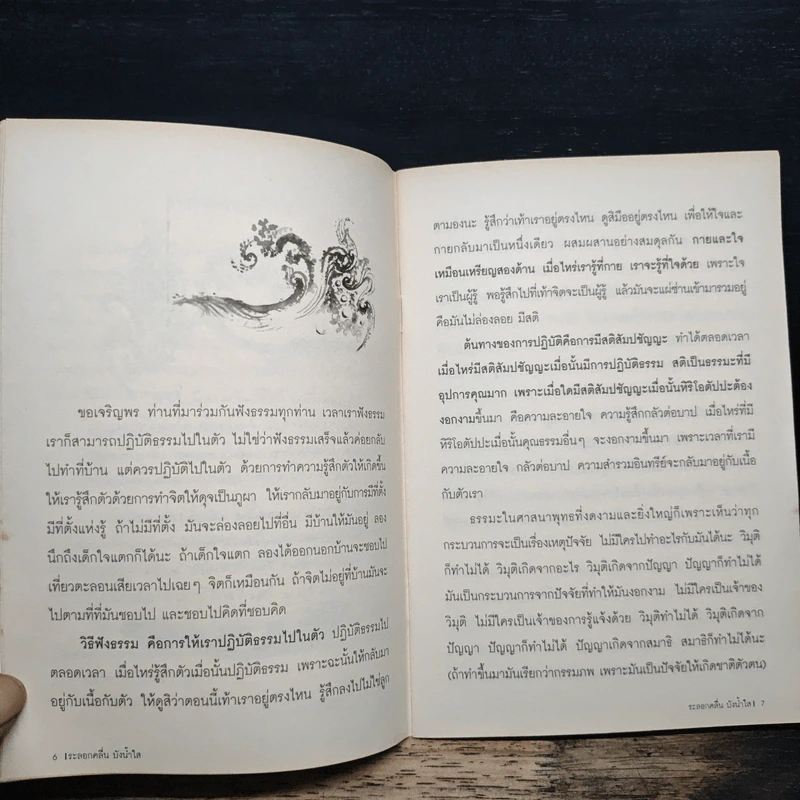 ขอเจริญพร ท่านที่มาร่วมกันฟังธรรมทุกท่าน เวลาเราฟังธรรม
เราก็สามารถปฏิบัติธรรมไปในตัว ไม่ใช่ว่าฟังธรรมเสร็จแล้วค่อยกลับ
ไปทำที่บ้าน แต่ควรปฏิบัติไปในตัว ด้วยการทำความรู้สึกตัวให้เกิดขึ้น
ให้เรารู้สึกตัวด้วยการทำจิตให้ดุจเป็นภูผา ให้เรากลับมาอยู่กับการมีที่ตั้ง
มีที่ตั้งแห่งรู้ ถ้าไม่มีที่ตั้ง มันจะล่องลอยไปที่อื่น มีบ้านให้มันอยู่ ลอง
นึกถึงเด็กใจแตกก็ได้นะ ถ้าเด็กใจแตก ลองได้ออกนอกบ้านจะชอบไป
เที่ยวตะลอนเสียเวลาไปเฉยๆ จิตก็เหมือนกัน ถ้าจิตไม่อยู่ที่บ้านมันจะ
ไปตามที่ที่มันชอบไป และชอบไปคิดที่ชอบคิด
วิธีฟังธรรม คือการให้เราปฏิบัติธรรมไปในตัว ปฏิบัติธรรมไป
ตลอดเวลา เมื่อไหร่รู้สึกตัวเมื่อนั้นปฏิบัติธรรม เพราะฉะนั้นให้กลับมา
อยู่กับเนื้อกับตัว ให้ดูสิว่าตอนนี้เท้าเราอยู่ตรงไหน รู้สึกลงไปไม่ใช่ลูก
6 | ระลอกคลื่น บังน้ำใส
ตามองนะ รู้สึกว่าเท้าเราอยู่ตรงไหน ดูสิมืออยู่ตรงไหน เพื่อให้ใจและ
กายกลับมาเป็นหนึ่งเดียว ผสมผสานอย่างสมดุลกัน กายและใจ
เหมือนเหรียญสองด้าน เมื่อไหร่เรารู้ที่กาย เราจะรู้ที่ใจด้วย เพราะใจ
เราเป็นผู้รู้ พอรู้สึกไปที่เท้าจิตจะเป็นผู้รู้ แล้วมันจะแผ่ซ่านเข้ามารวมอยู่
คือมันไม่ล่องลอย มีสติ
ต้นทางของการปฏิบัติคือการมีสติสัมปชัญญะ ทำได้ตลอดเวลา
เมื่อไหร่มีสติสัมปชัญญะเมื่อนั้นมีการปฏิบัติธรรม สติเป็นธรรมะที่มี
อุปการคุณมาก เพราะเมื่อใดมีสติสัมปชัญญะเมื่อนั้นหิริโอตัปปะต้อง
งอกงามขึ้นมา คือความละอายใจ ความรู้สึกกลัวต่อบาป เมื่อไหร่ที่มี
หิริโอตัปปะเมื่อนั้นคุณธรรมอื่นๆ จะงอกงามขึ้นมา เพราะเวลาที่เรามี
ความละอายใจ กลัวต่อบาป ความสำรวมอินทรีย์จะกลับมาอยู่กับเนื้อ
กับตัวเรา
ธรรมะในศาสนาพุทธที่งดงามและยิ่งใหญ่ก็เพราะเห็นว่าทุก
กระบวนการจะเป็นเรื่องเหตุปัจจัย ไม่มีใครไปทำอะไรกับมันได้นะ วิมุติ
ก็ทำไม่ได้ วิมุติเกิดจากอะไร วิมุติเกิดจากปัญญา ปัญญาก็ทำไม่ได้
มันเป็นกระบวนการจากปัจจัยที่ทำให้มันงอกงาม ไม่มีใครเป็นเจ้าของ
วิมุติ ไม่มีใครเป็นเจ้าของการรู้แจ้งด้วย วิมุติทำไม่ได้ วิมุติเกิดจาก
ปัญญา ปัญญาก็ทำไม่ได้ ปัญญาเกิดจากสมาธิ สมาธิก็ทำไม่ได้นะ
(ถ้าทำขึ้นมามันเรียกว่ากรรมภพ เพราะมันเป็นปัจจัยให้เกิดชาติตัวตน)
ระลอกคลื่น บังน้ำใส | 7